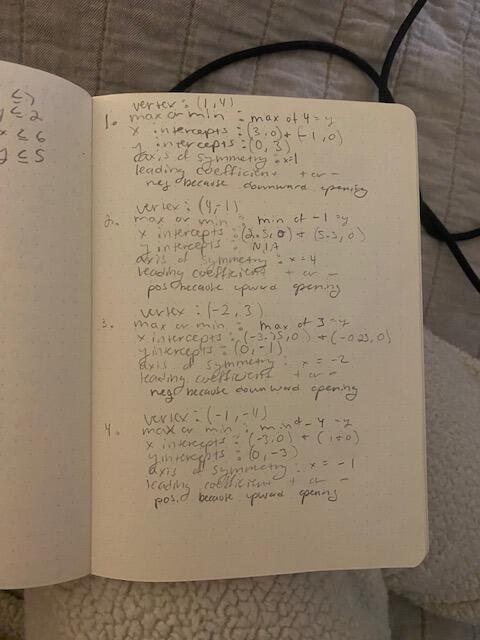 ≤ 7
y ≤ 2
x ≤ 6
y ≤ 5
vertex : (1,4)
1. max or min : max of 4 = y
x intercepts : (3,0) + (-1,0)
y intercepts : (0,3)
axis of symmetry : x=1
leading coefficient + or -
neg because downward opening
vertex : (4,-1)
2. max or min : min of -1 = y
x intercepts : (2.5,0) + (5.3,0)
y intercepts : N/A
axis of symmetry : x = 4
leading coefficient + or -
pos because upward opening
vertex : (-2,3)
3. max or min : max of 3 = y
x intercepts : (-3.75,0) + (-0.23,0)
y intercepts : (0,-1)
axis of symmetry : x = -2
leading coefficient + or -
neg because downward opening
vertex : (-1,-4)
4. max or min : min of -4 = y
x intercepts : (-3,0) + (1,0)
y intercepts : (0,-3)
axis of symmetry : x = -1
leading coefficient + or -
pos. because upward opening